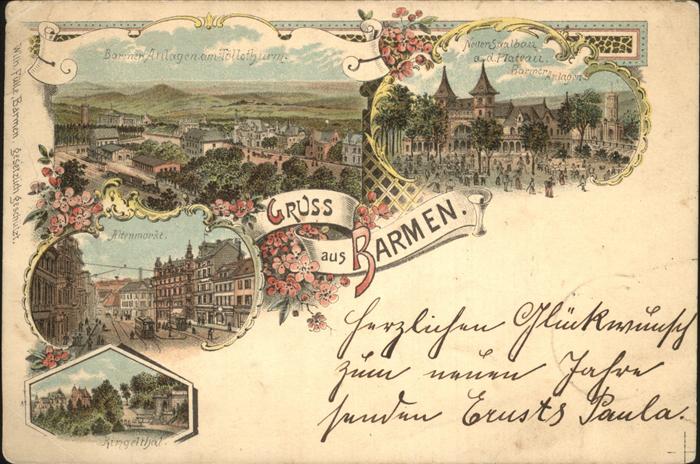 Barmer Anlagen am Töllethurm.
Neuer Saalbau
a. d. Plateau.
Barmer Anlagen
Wilh. Fülle, Barmen gesetzlich geschützt.
GRUSS
aus BARMEN.
Altenmarkt.
Ringelthal.
herzlichen Glückwunsch
zum neuen Jahre
senden Ernsts Paula.